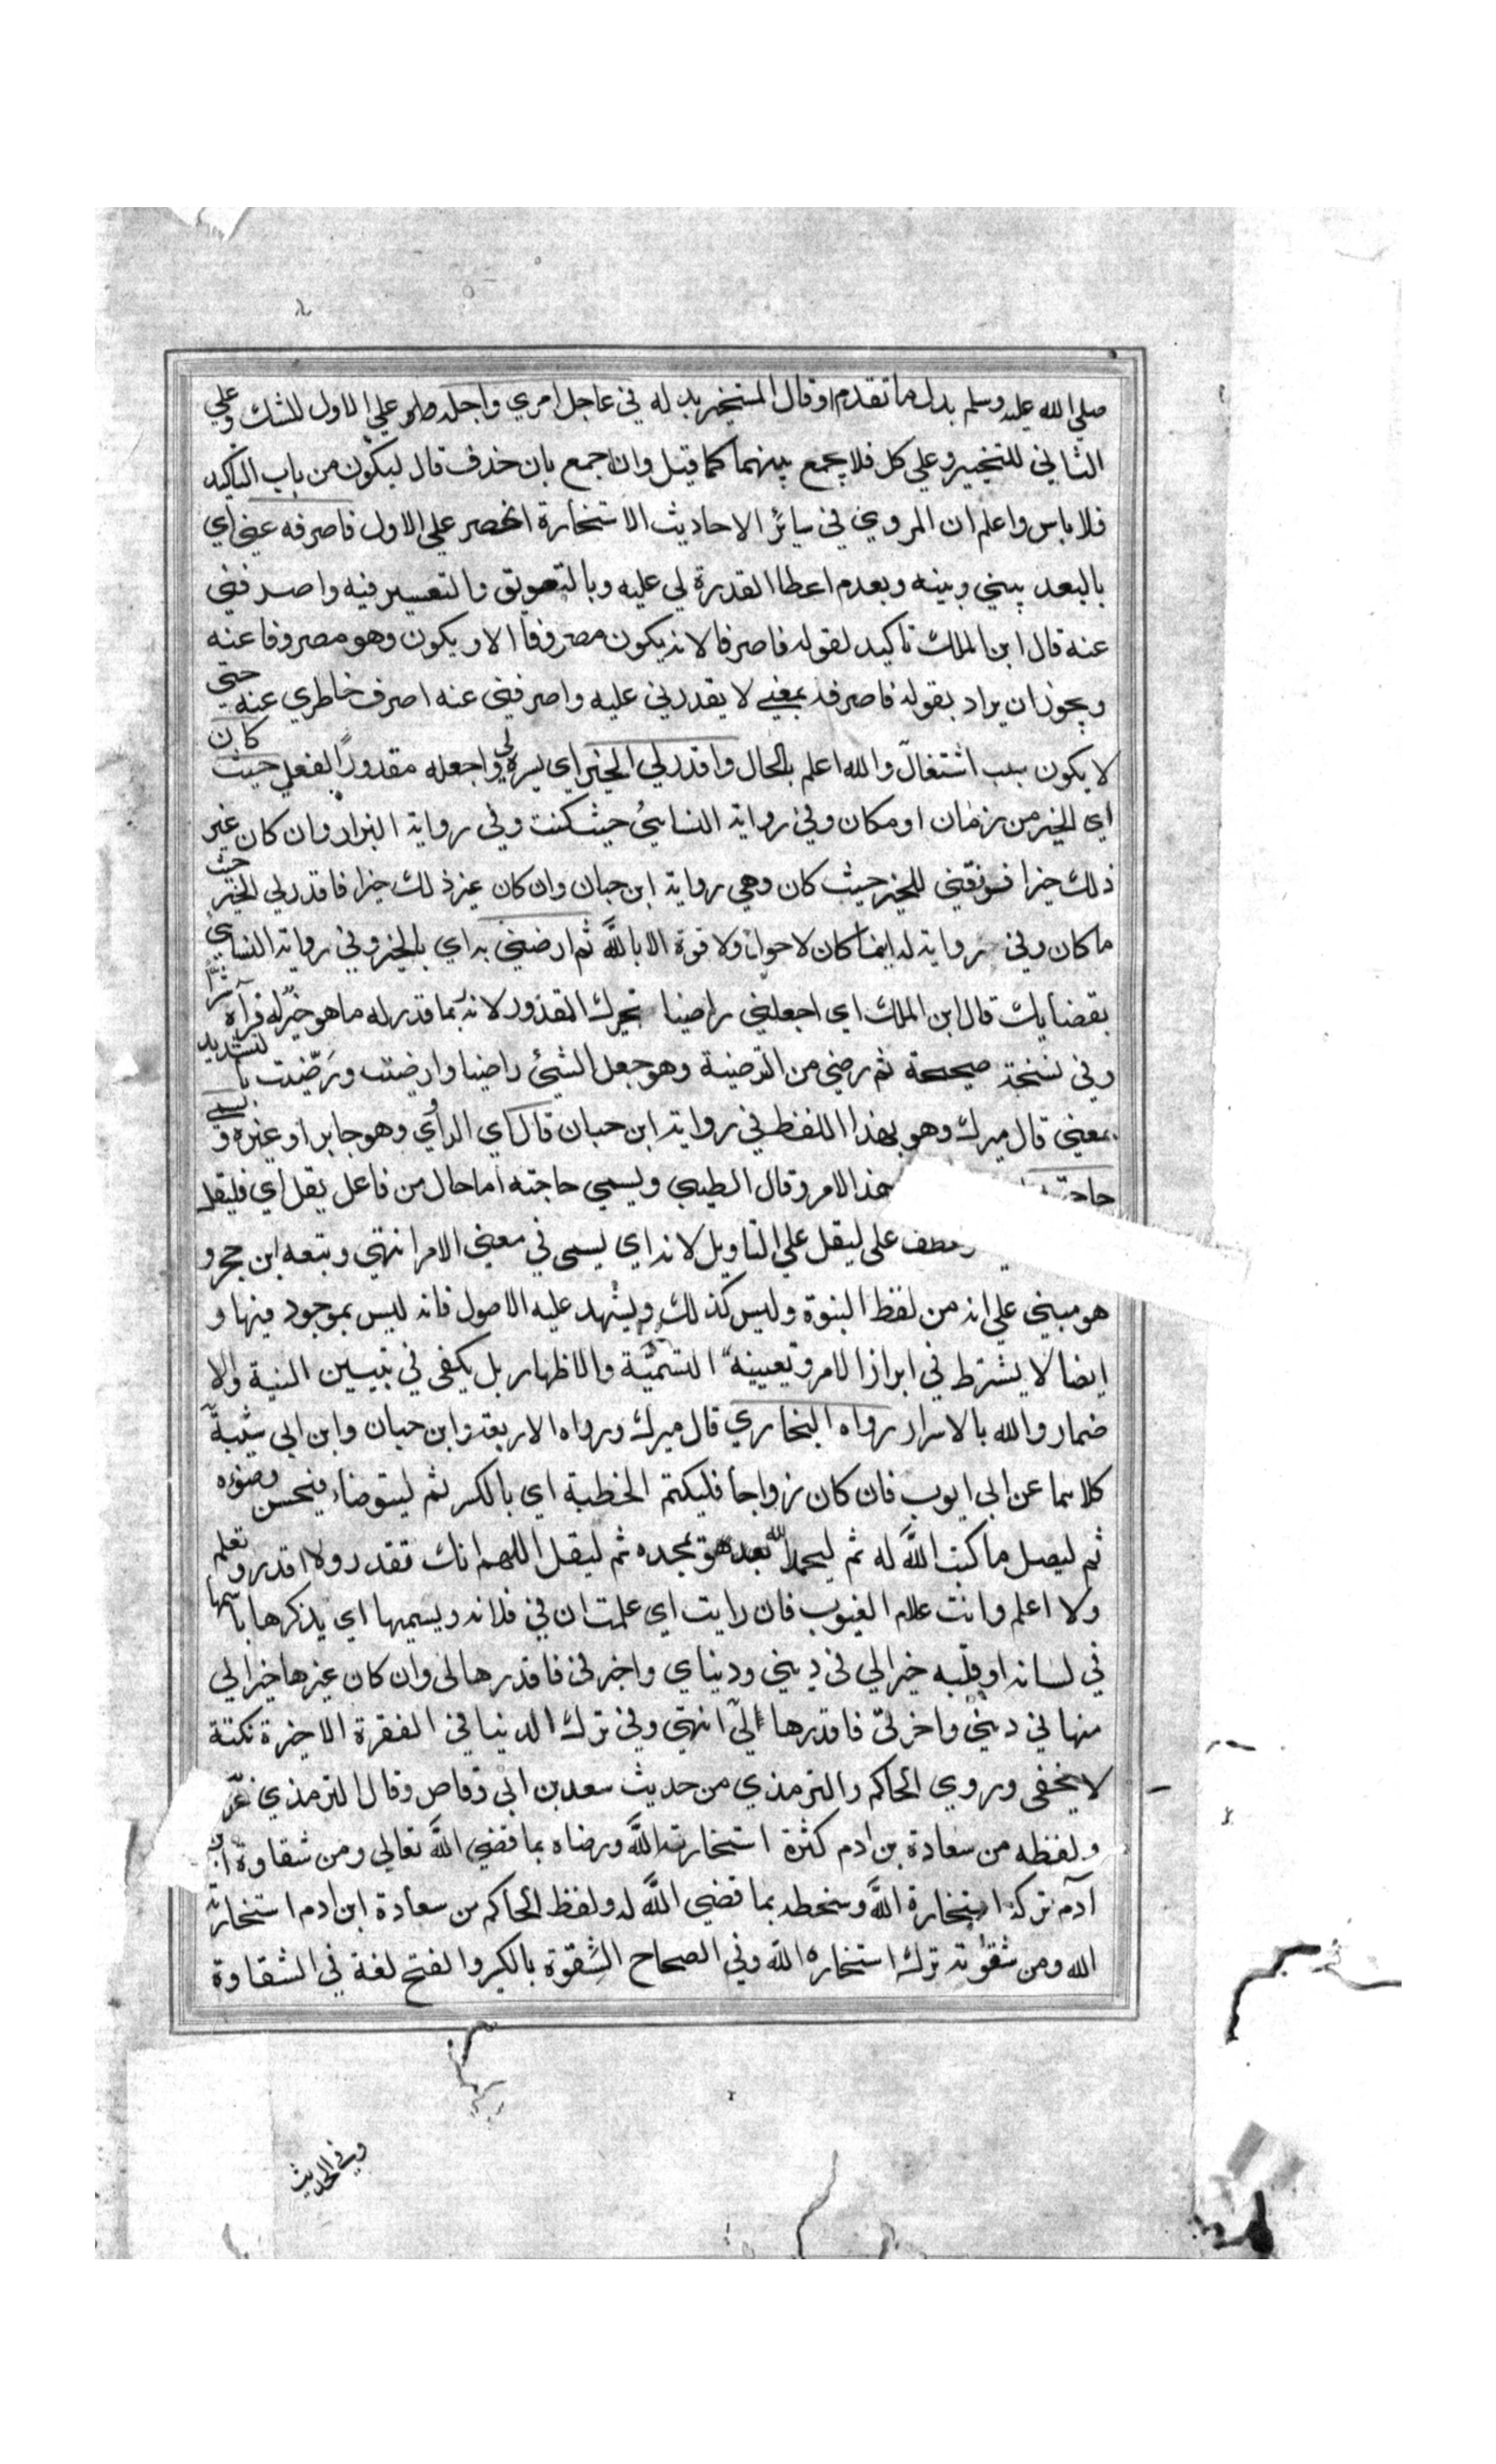 صلي الله عليه وسلم بدل ما تقدم او قال المستخير بدله في عاجل امري واجله واو علي الاول للشك وعلي
الثاني للتخيير وعلي كل فلا يجمع بينهما كما قيل وان جمع بان حذف قال ليكون من باب التاكيد
فلا باس واعلم ان المروي في سائر الاحاديث الاستخارة انحصر علي الاول فاصرفه عني اي
بالبعد بيني وبينه وبعدم اعطا القدرة لي عليه وبالتعويق والتعسير فيه واصرفني
عنه قال ابن الملك تاكيد لقوله فاصرفا لانه يكون مصروفا الا ويكون وهو مصروفا عنه
ويجوز ان يراد بقوله فاصرفه بمعني لا يقدرني عليه واصرفني عنه اصرف خاطري عنه حتي
لا يكون سبب اشتغال والله اعلم بالحال واقدر لي الخير اي يسره لي واجعله مقدورا لفعلي حيث كان
اي الخير من زمان او مكان وفي رواية النسائي حيث كنت وفي رواية البزار وان كان غير
ذلك خيرا فوفقني للخير حيث كان وهي رواية ابن حبان وان كان غير ذلك خيرا فاقدر لي الخير حيث
ما كان وفي رواية له اينما كان لا حول ولا قوة الا بالله ثم ارضني به اي بالخير وفي رواية النساي
بقضايك قال ابن الملك اي اجعلني راضيا بخيرك المقدور لانه بما قدر له ما هو خير له فرآه شرا
وفي نسخة صحيحة ثم رضني من الترضية وهو جعل الشئ راضيا وارضيت ورضيت بالتشديد
بمعني قال ميرك وهو بهذا اللفظ في رواية ابن حبان قال اي الراوي وهو جابر او غيره ويسمي
حاجته هذا الامر وقال الطيبي ويسمي حاجته اما حال من فاعل يقل اي فليقل
عطف علي ليقل علي التاويل لانه اي يسمي في معني الامر انتهي وتبعه ابن حجر و
هو مبني علي انه من لفظ النبوة وليس كذلك ويشهد عليه الاصول فانه ليس بموجود فيها و
ايضا لا يشترط في ابراز الامر وتعيينه التسمية والاظهار بل يكفي في تبيين النية والا
ضمار والله بالاسرار رواه البخاري قال ميرك ورواه الاربعة وابن حبان وابن ابي شيبة
كلاهما عن ابي ايوب فان كان زواجا فليكتم الخطبة اي بالكسر ثم ليتوضاء فيحسن وضوءه
ثم ليصل ما كتب الله له ثم ليحمد الله بعد هو يمجده ثم ليقل اللهم انك تقدر ولا اقدر وتعلم
ولا اعلم وانت علام الغيوب فان رايت اي علمت ان في فلانة ويسميها اي يذكرها باسمها
في لسانه او قلبه خيرا لي في ديني ودنياي واخرتي فاقدرها لي وان كان غيرها خيرا لي
منها في ديني واخرتي فاقدرها لي انتهي وفي ترك الدنيا في الفقرة الاخيرة نكتة
لا يخفي وروي الحاكم والترمذي من حديث سعد بن ابي وقاص وقال الترمذي
ولفظه من سعادة بن ادم كثرة استخارته الله ورضاه بما قضي الله تعالي ومن شقاوة ابن
آدم تركه استخارة الله وسخطه بما قضي الله له ولفظ الحاكم من سعادة ابن ادم استخارته
الله ومن شقوته ترك استخاره الله وفي الصحاح الشقوة بالكسر والفتح لغة في الشقاوة
وفي الحديث